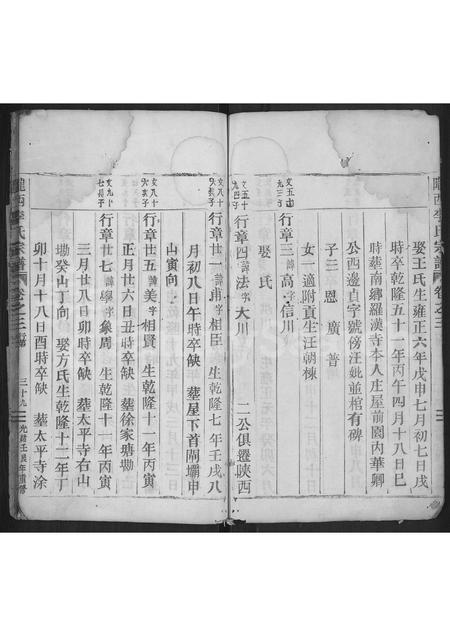 隴西李氏宗譜 卷之三
娶王氏生雍正六年戊申七月初七日戌
時卒乾隆五十一年丙午四月十八日巳
時葬南鄉羅漢寺本人庄屋前園內華卿
公西邊直字號傍汪妣並棺有碑
子三 恩 廣 普
女一適附貢生汪朝棟
行章三諱高字信川
娶氏
行章四諱法字大川 二公俱遷陝西
行章廿一諱甫字相臣 生乾隆七年壬戌八
月初八日午時卒缺 葬屋下首閘壩申
山寅向
行章廿五諱美字相賢 生乾隆十一年丙寅
正月廿六日丑時卒缺 葬徐家塘坳
行章廿七諱學字象周 生乾隆十一年丙寅
三月廿八日卯時卒缺 葬太平寺右山
坳癸山丁向 娶方氏生乾隆十二年丁
卯十月十八日酉時卒缺 葬太平寺涂
隴西李氏宗譜 卷之三 三十九 光緒壬辰年重脩